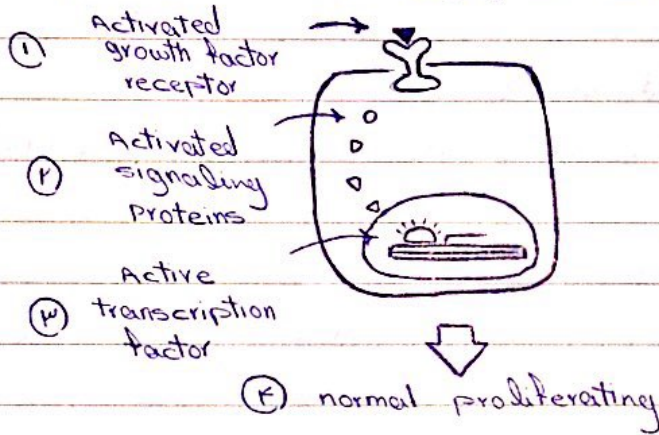 ① Activated
growth factor
receptor
② Activated
signaling
proteins
③ Active
transcription
factor
④ normal proliferating